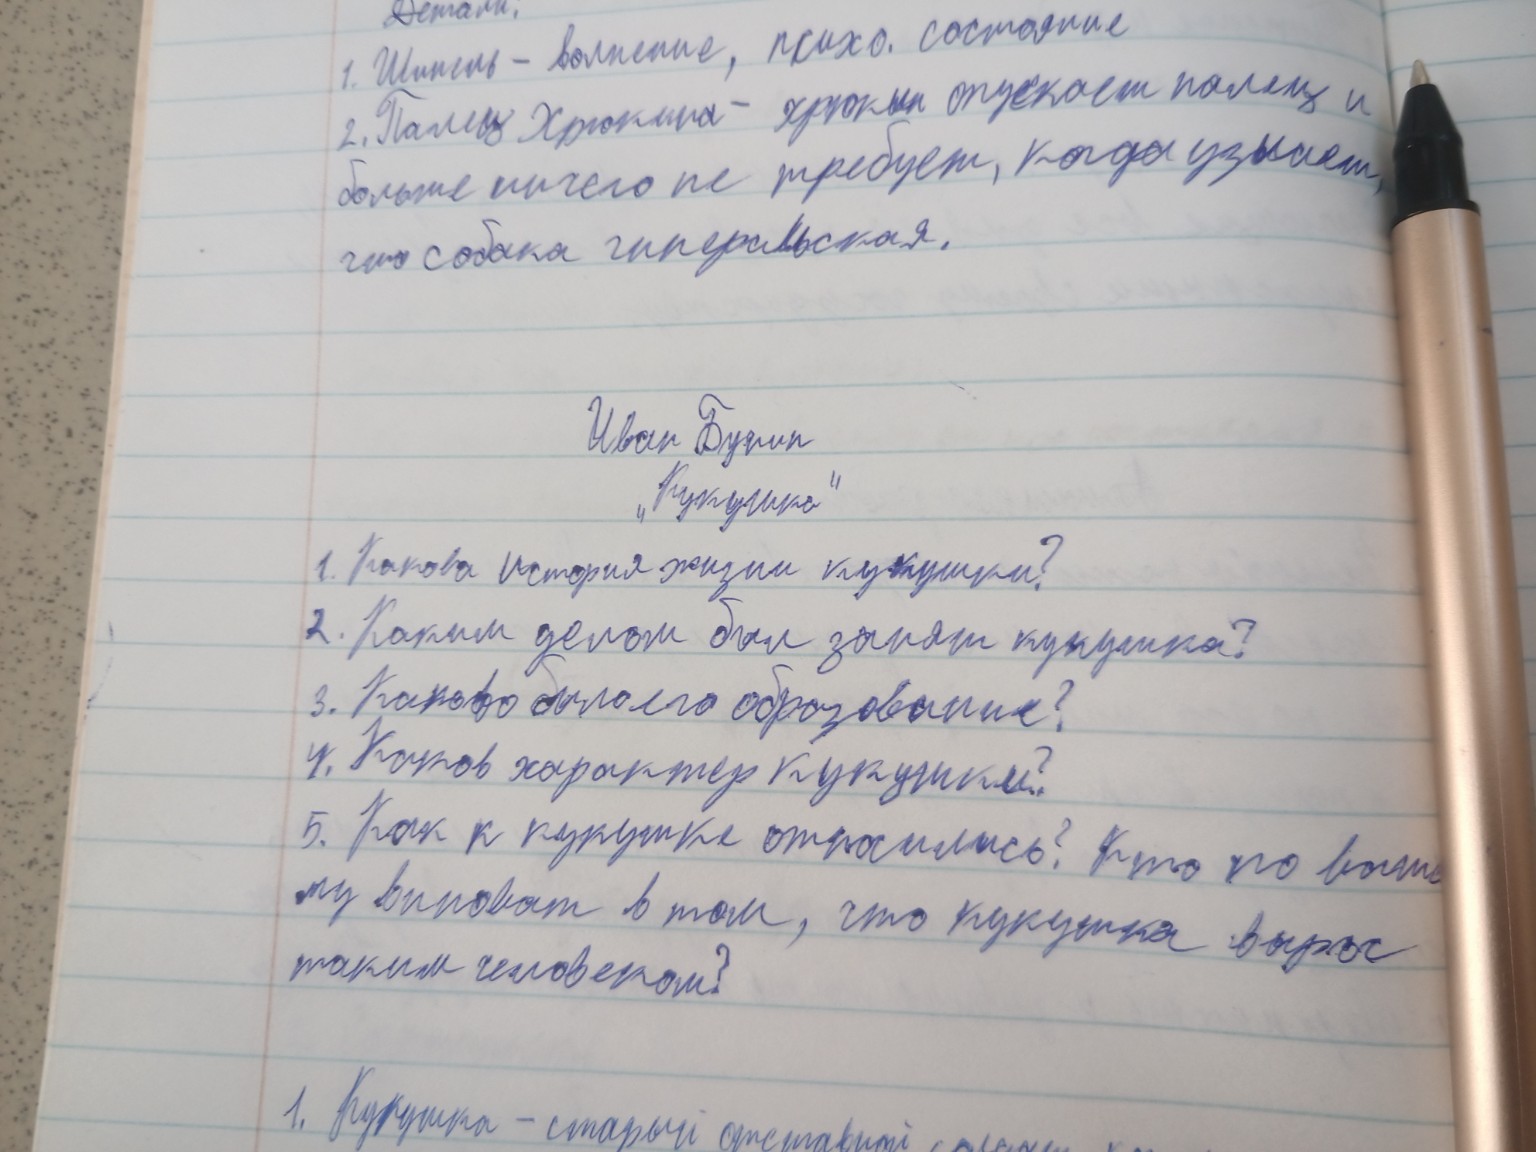 Детали:
1. Шинель - волнение, психо. состояние
2. Палец Хрюкина - хрюкин опускает палец и
больше ничего не требует, когда узнает,
что собака гинеральская.
Иван Бунин
„Кукушка"
1. Какова история жизни кукушки?
2. Каким делом был занят кукушка?
3. Каково было его образование?
4. Каков характер кукушки?
5. Как к кукушке относились? Кто по ваше
му виноват в том, что кукушка вырос
таким человеком?
1. Кукушка - старый отставной солдат